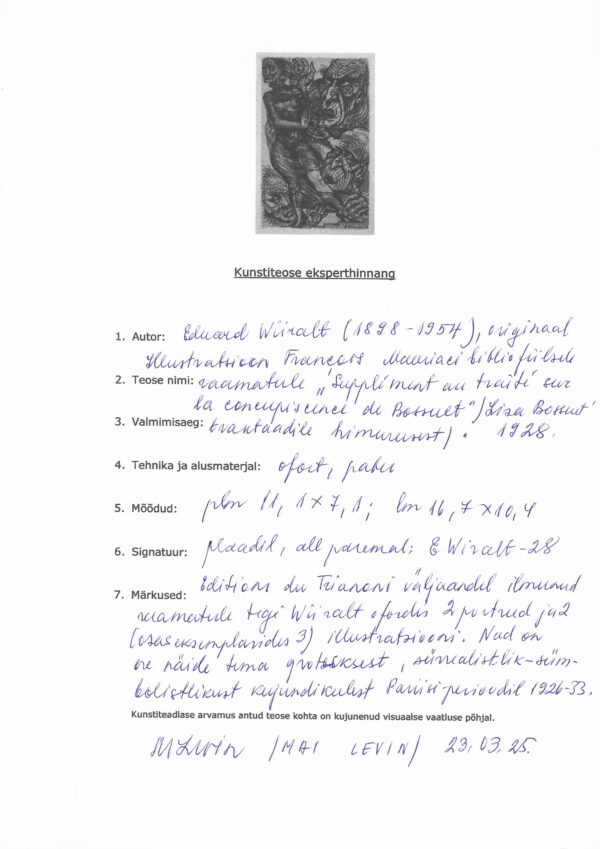 Kunstiteose eksperthinnang
1. Autor: Eduard Wiiralt (1898-1954), originaal
Illustratsioon François Mauriaci bibliofiilsele
2. Teose nimi: raamatule „Supplément au traité sur
la concupiscence de Bossuet" / Lisa Bossuet'
3. Valmimisaeg: traktaadile himurusest/. 1928.
4. Tehnika ja alusmaterjal: ofort, paber
5. Mõõdud: plm 11,1x7,1; lm 16,7x10,4
6. Signatuur: plaadil, all paremal: E Wiralt-28
7. Märkused: Editions du Trianoni väljaandel ilmunud
raamatule tegi Wiiralt ofordis 2 portreed ja 2
(osas eksemplarides 3) illustratsiooni. Nad on
ere näide tema grotesksest, sürrealistlik-süm-
bolistlikust kujundikeelest Pariisi-perioodil 1926-33.
Kunstiteadlase arvamus antud teose kohta on kujunenud visuaalse vaatluse põhjal.
MLevin /MAI LEVIN/ 23.03.25.